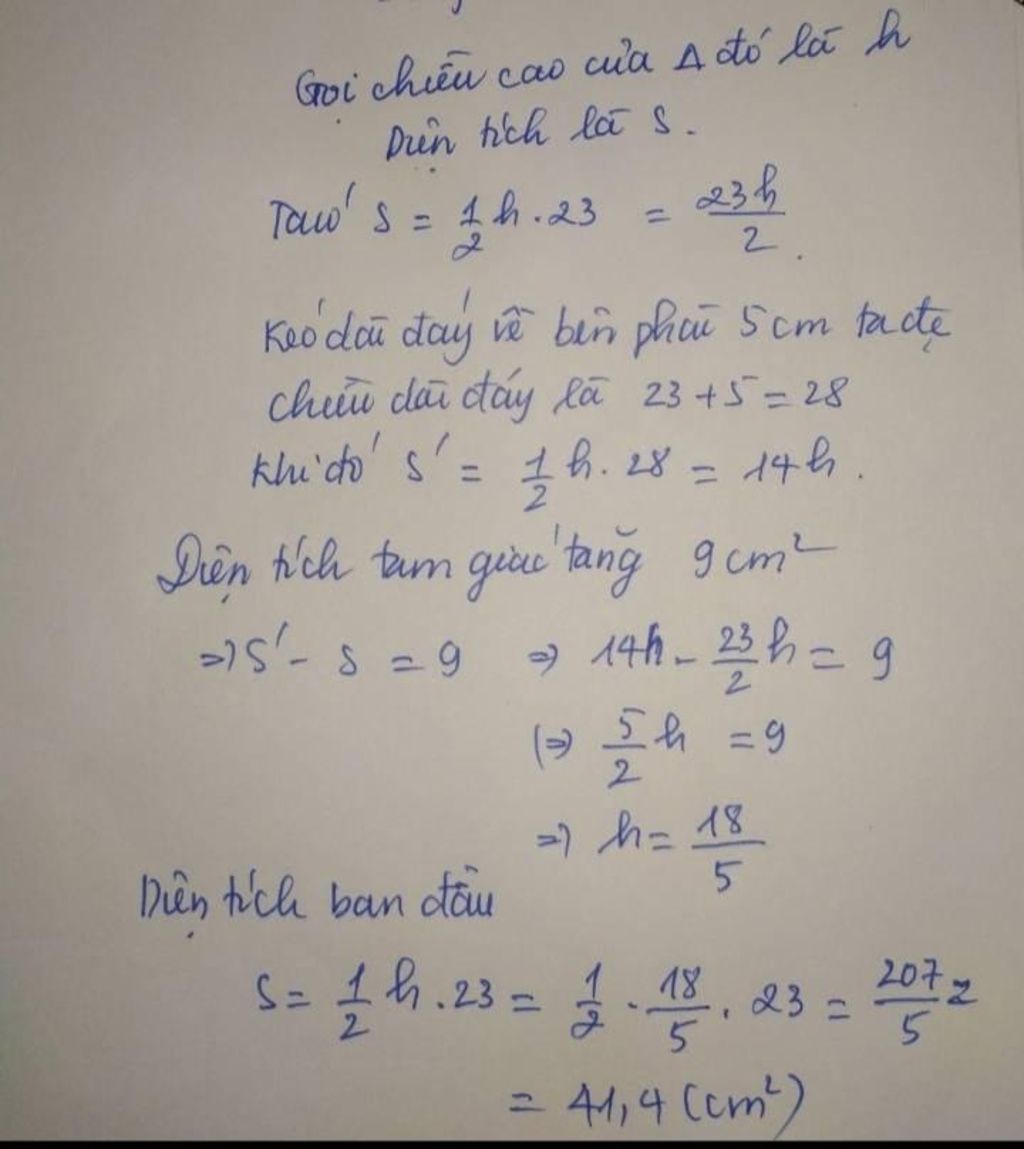 Gọi chiều cao của Δ đó là h
Diện tích là S.
Ta có S = 1/2 h . 23 = 23h/2.
Kéo dài đáy về bên phải 5cm ta đc
chiều dài đáy là 23 + 5 = 28
Khi đó S' = 1/2 h . 28 = 14h.
Diện tích tam giác tăng 9cm²
=> S' - S = 9 => 14h - 23/2 h = 9
(=> 5/2 h = 9
=> h = 18/5
Diện tích ban đầu
S = 1/2 h . 23 = 1/2 . 18/5 . 23 = 207/5 =
= 41,4 (cm²)